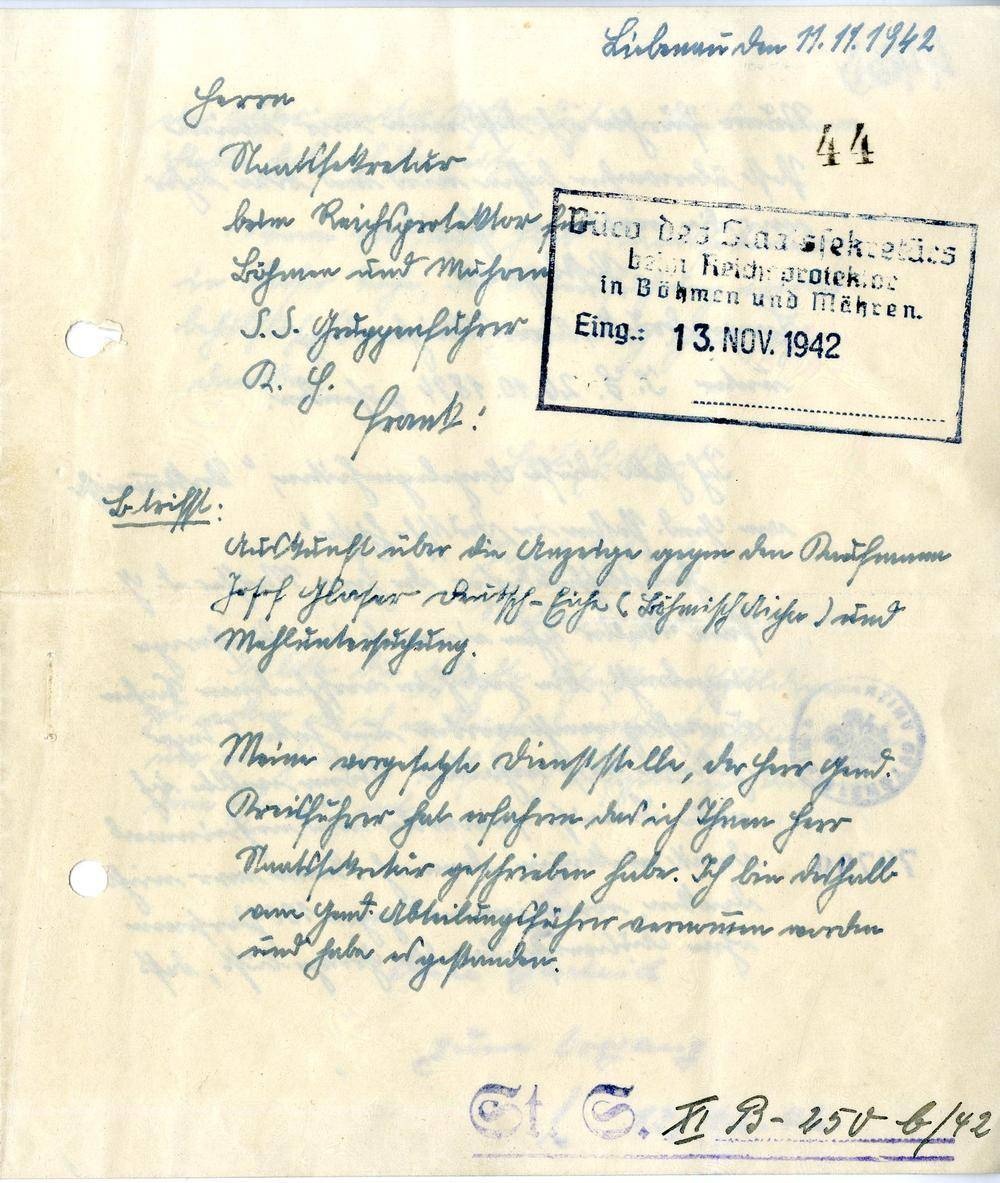 Liebenau den 11.11.1942
Herrn
44
Staatssekretär
beim Reichsprotektor für
Böhmen und Mähren
S.S. Gruppenführer
K. H.
Frank!
Büro des Staatssekretärs
beim Reichsprotektor
in Böhmen und Mähren.
Eing.: 13. NOV. 1942
Betrifft:
Auskunft über die Anzeige gegen den Kaufmann
Josef Glaser Deutsch-Eiche (Böhmisch Aicha) und
Mehluntersuchung.
Meine vorgesetzte Dienststelle, der Herr Gend.
Kreisführer hat erfahren das ich Ihnen Herr
Staatssekretär geschrieben habe. Ich bin deshalb
vom Gend. Abteilungsführer vernommen worden
und habe es gestanden.
St. S. XI B - 250 b/42